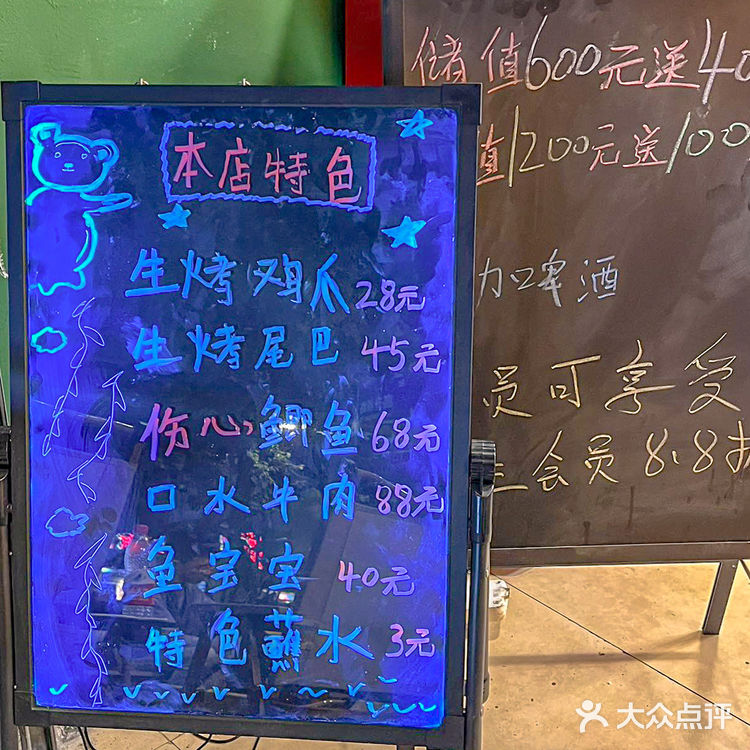 本店特色
生烤鸡爪28元
生烤尾巴45元
伤心鲫鱼68元
口水牛肉88元
鱼宝宝40元
特色蘸水3元
储值600元送40
值1200元送100
加啤酒
员可享受
会员8.8折
大众点评